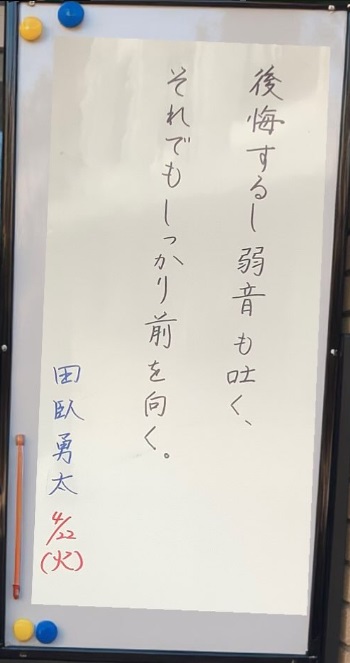 後悔するし弱音も吐く、
それでもしっかり前を向く。
田臥勇太
4/22
(火)